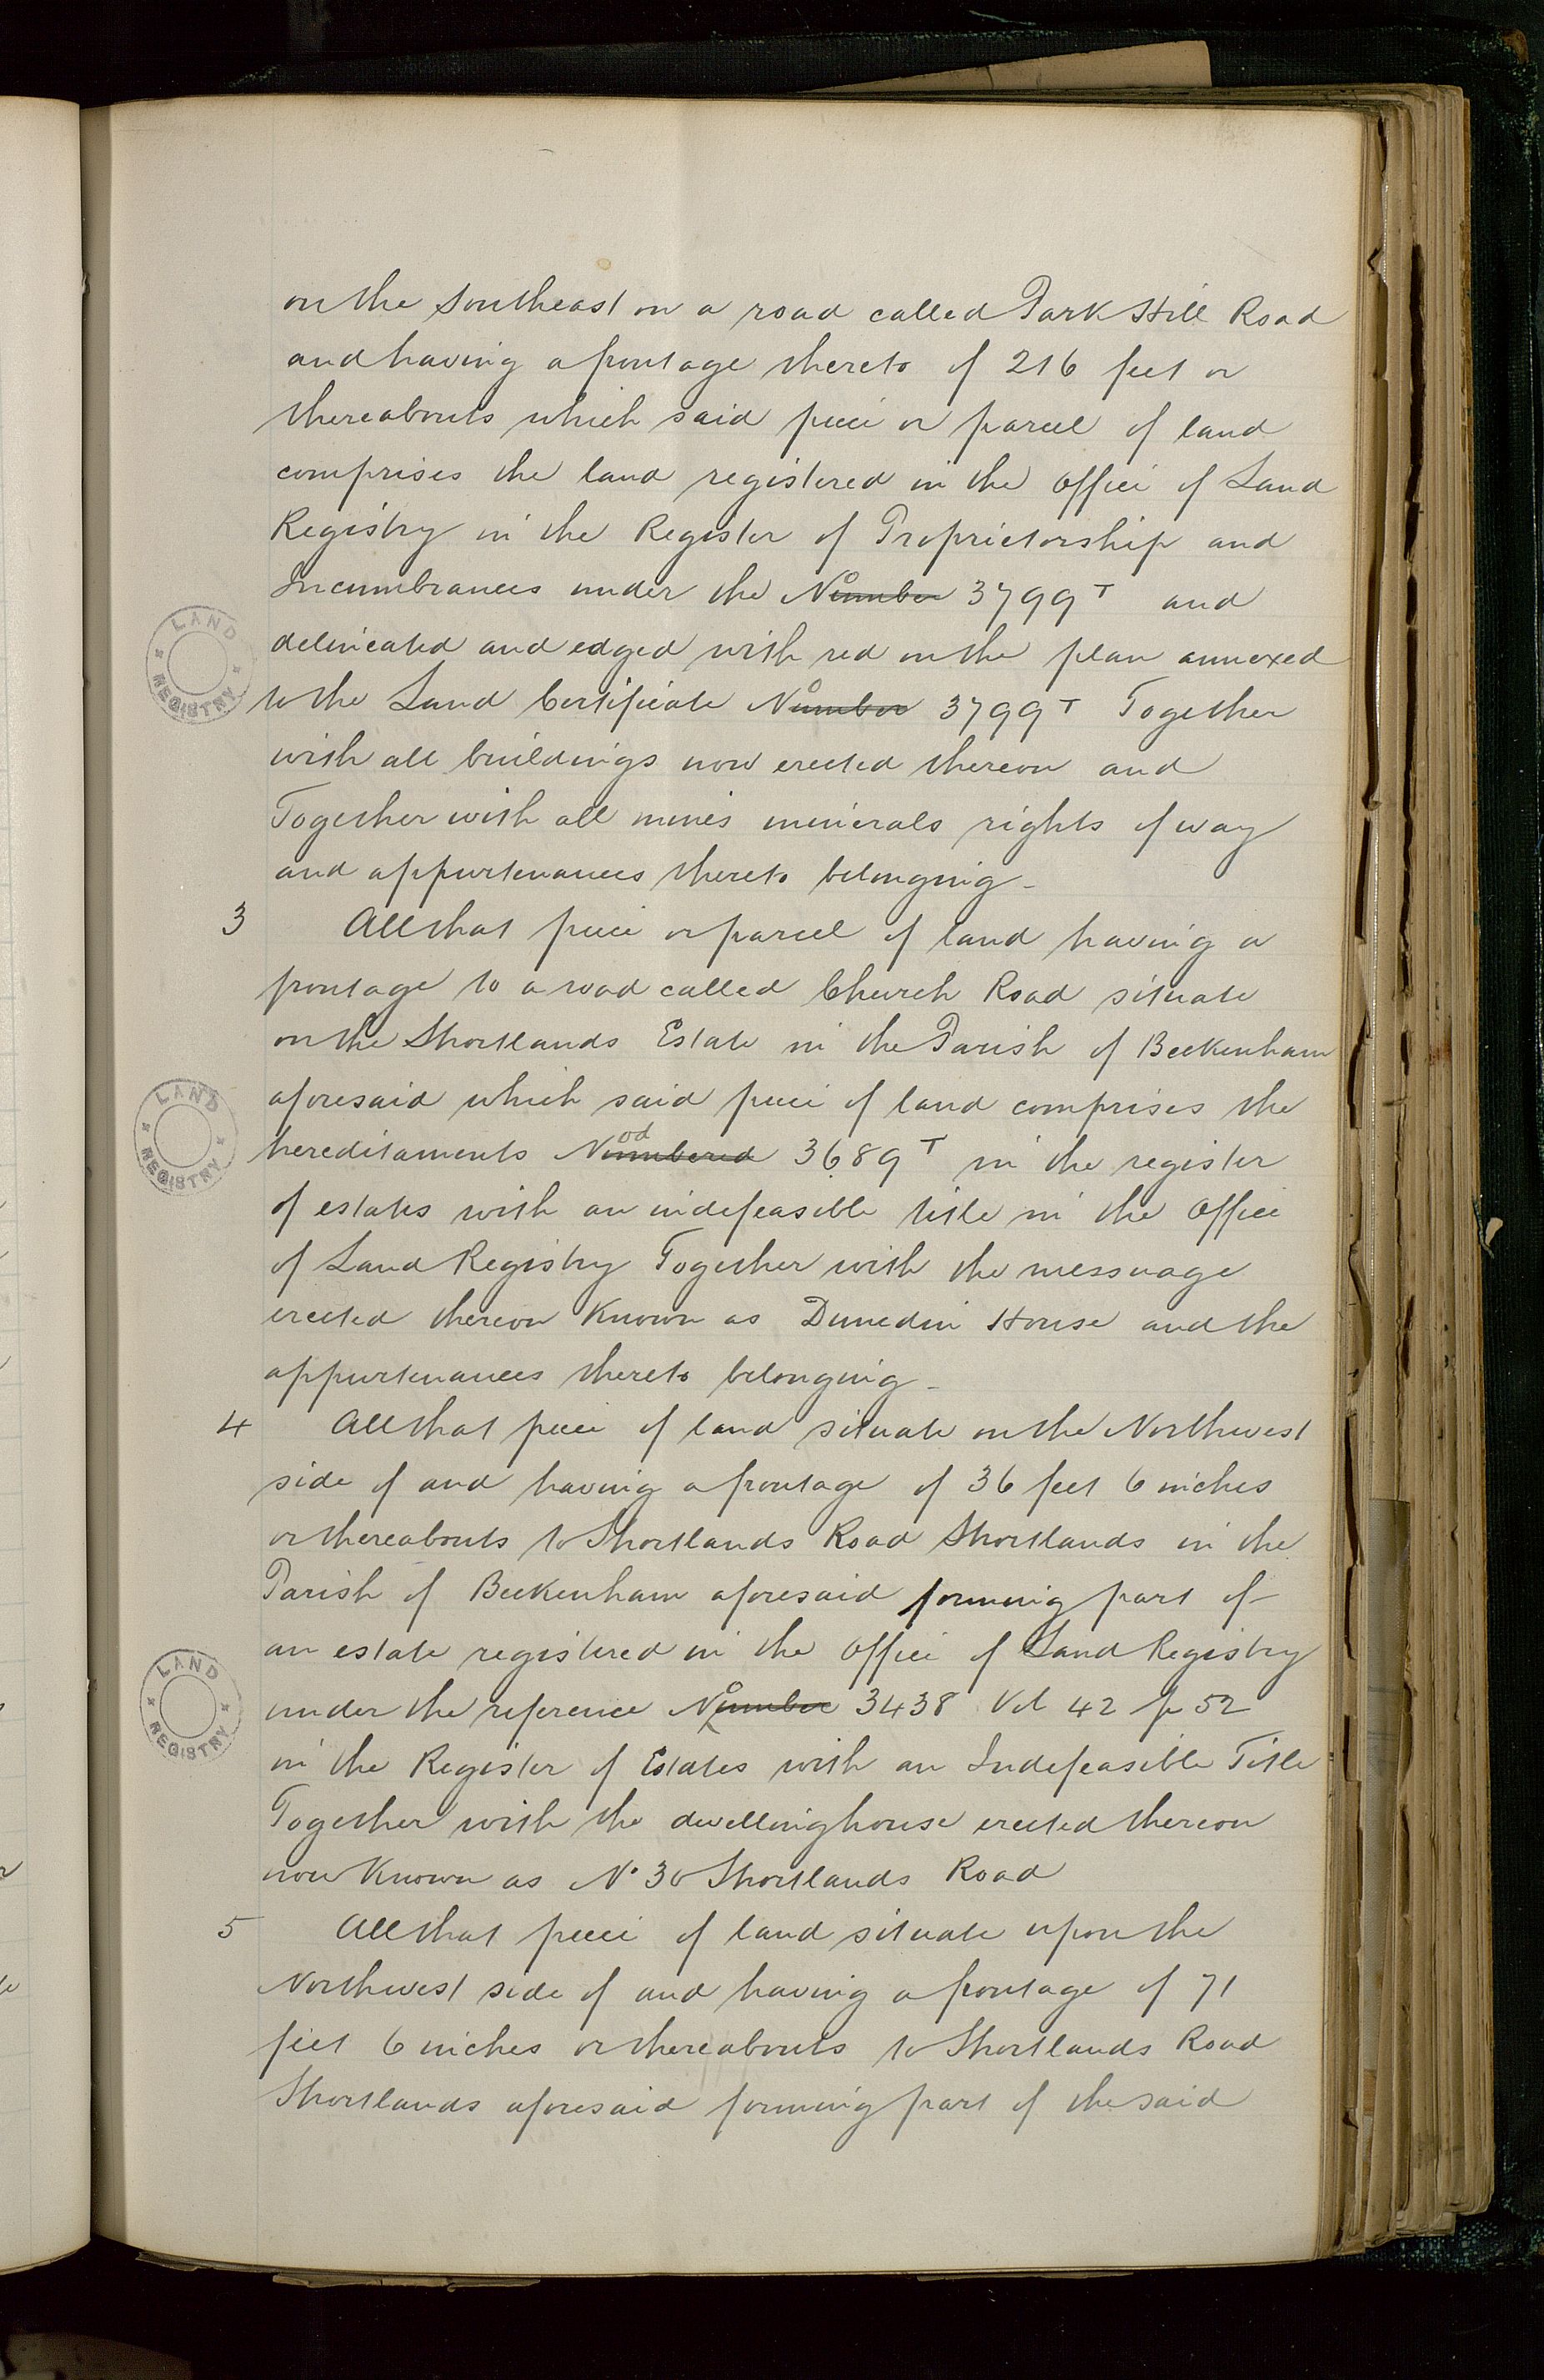 on the Southeast on a road called Park Hill Road
and having a frontage thereto of 216 feet or
thereabouts which said piece or parcel of land
comprises the land registered in the Office of Land
Registry in the Register of Proprietorship and
Incumbrances under the No Number 3799 T and
delineated and edged with red on the plan annexed
to the Land Certificate No Number 3799 T Together
with all buildings now erected thereon and
Together with all mines minerals rights of way
and appurtenances thereto belonging -
3 All that piece or parcel of land having a
frontage to a road called Church Road situate
on the Shortlands Estate in the Parish of Beckenham
aforesaid which said piece of land comprises the
hereditaments Nod Numbered 3689 T in the register
of estates with an indefeasible title in the Office
of Land Registry Together with the messuage
erected thereon Known as Dunedin House and the
appurtenances thereto belonging -
4 All that piece of land situate on the Northwest
side of and having a frontage of 36 feet 6 inches
or thereabouts to Shortlands Road Shortlands in the
Parish of Beckenham aforesaid forming part of
an estate registered in the Office of Land Registry
under the reference No Number 3438 Vol 42 p 52
in the Register of Estates with an Indefeasible Title
Together with the dwellinghouse erected thereon
now Known as No 30 Shortlands Road
5 All that piece of land situate upon the
Northwest side of and having a frontage of 71
feet 6 inches or thereabouts to Shortlands Road
Shortlands aforesaid forming part of the said
LAND REGISTRY
LAND REGISTRY
LAND REGISTRY